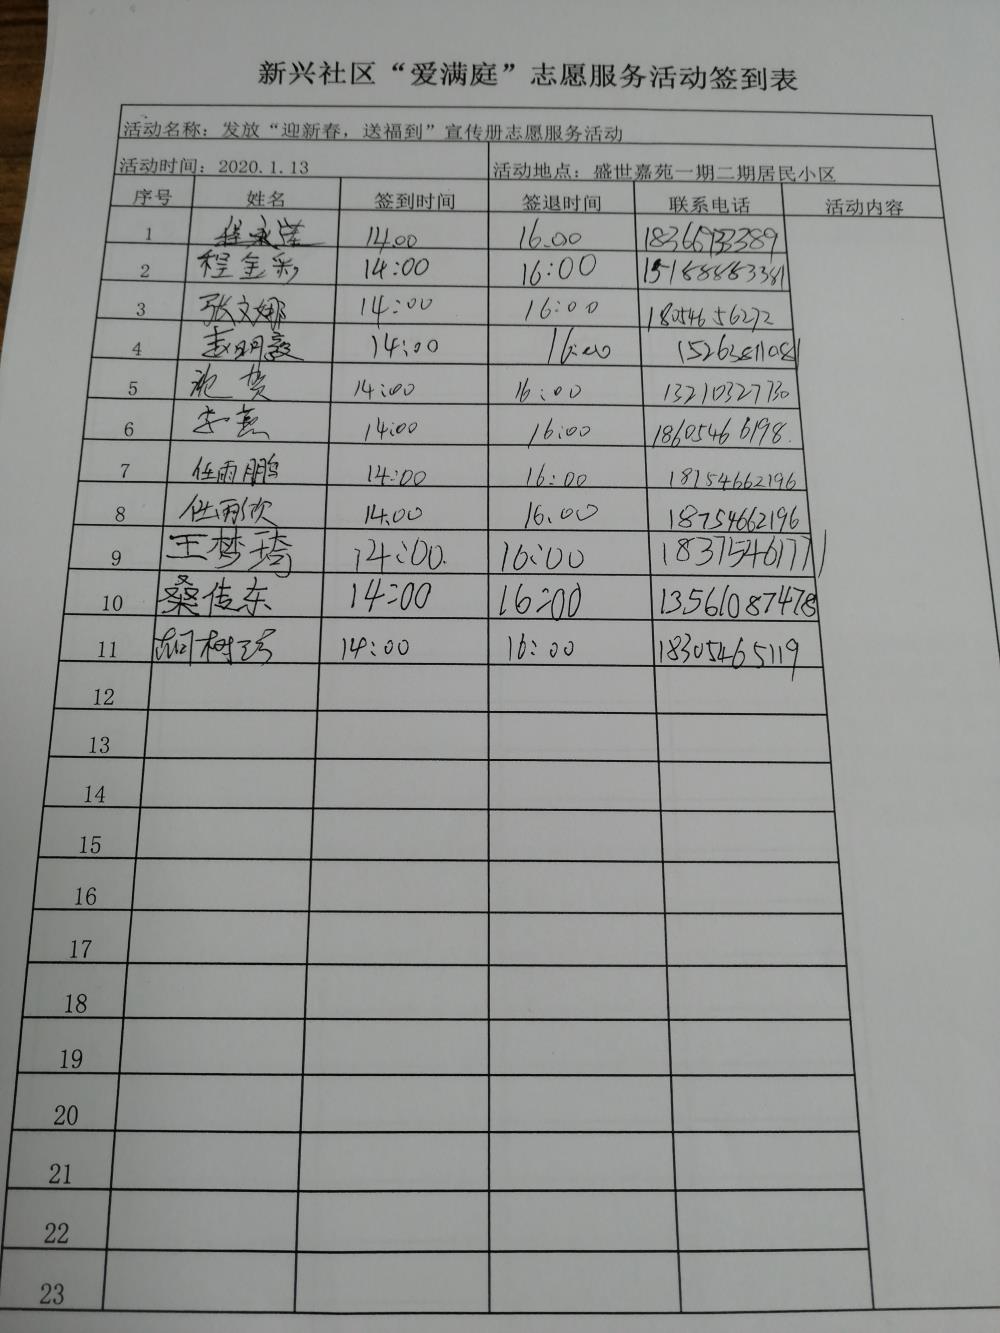 新兴社区“爱满庭”志愿服务活动签到表
活动名称：发放“迎新春，送福到”宣传册志愿服务活动
活动时间：2020.1.13 活动地点：盛世嘉苑一期二期居民小区
序号 姓名 签到时间 签退时间 联系电话 活动内容
1 14.00 16.00
2 程金彩 14:00 16:00 15188883381
3 张文娜 14:00 16:00 18054656272
4 14:00 16:00 15263811081
5 14:00 16:00 13210327730
6 李熹 14:00 16:00 18605466198.
7 任雨鹏 14:00 16:00 18754662196
8 任雨欣 14.00 16.00 18754662196
9 王梦琦 14:00. 16:00 18375461771
10 桑传东 14:00 16:00 13561087478
11 14:00 16:00 18305465119
12
13
14
15
16
17
18
19
20
21
22
23